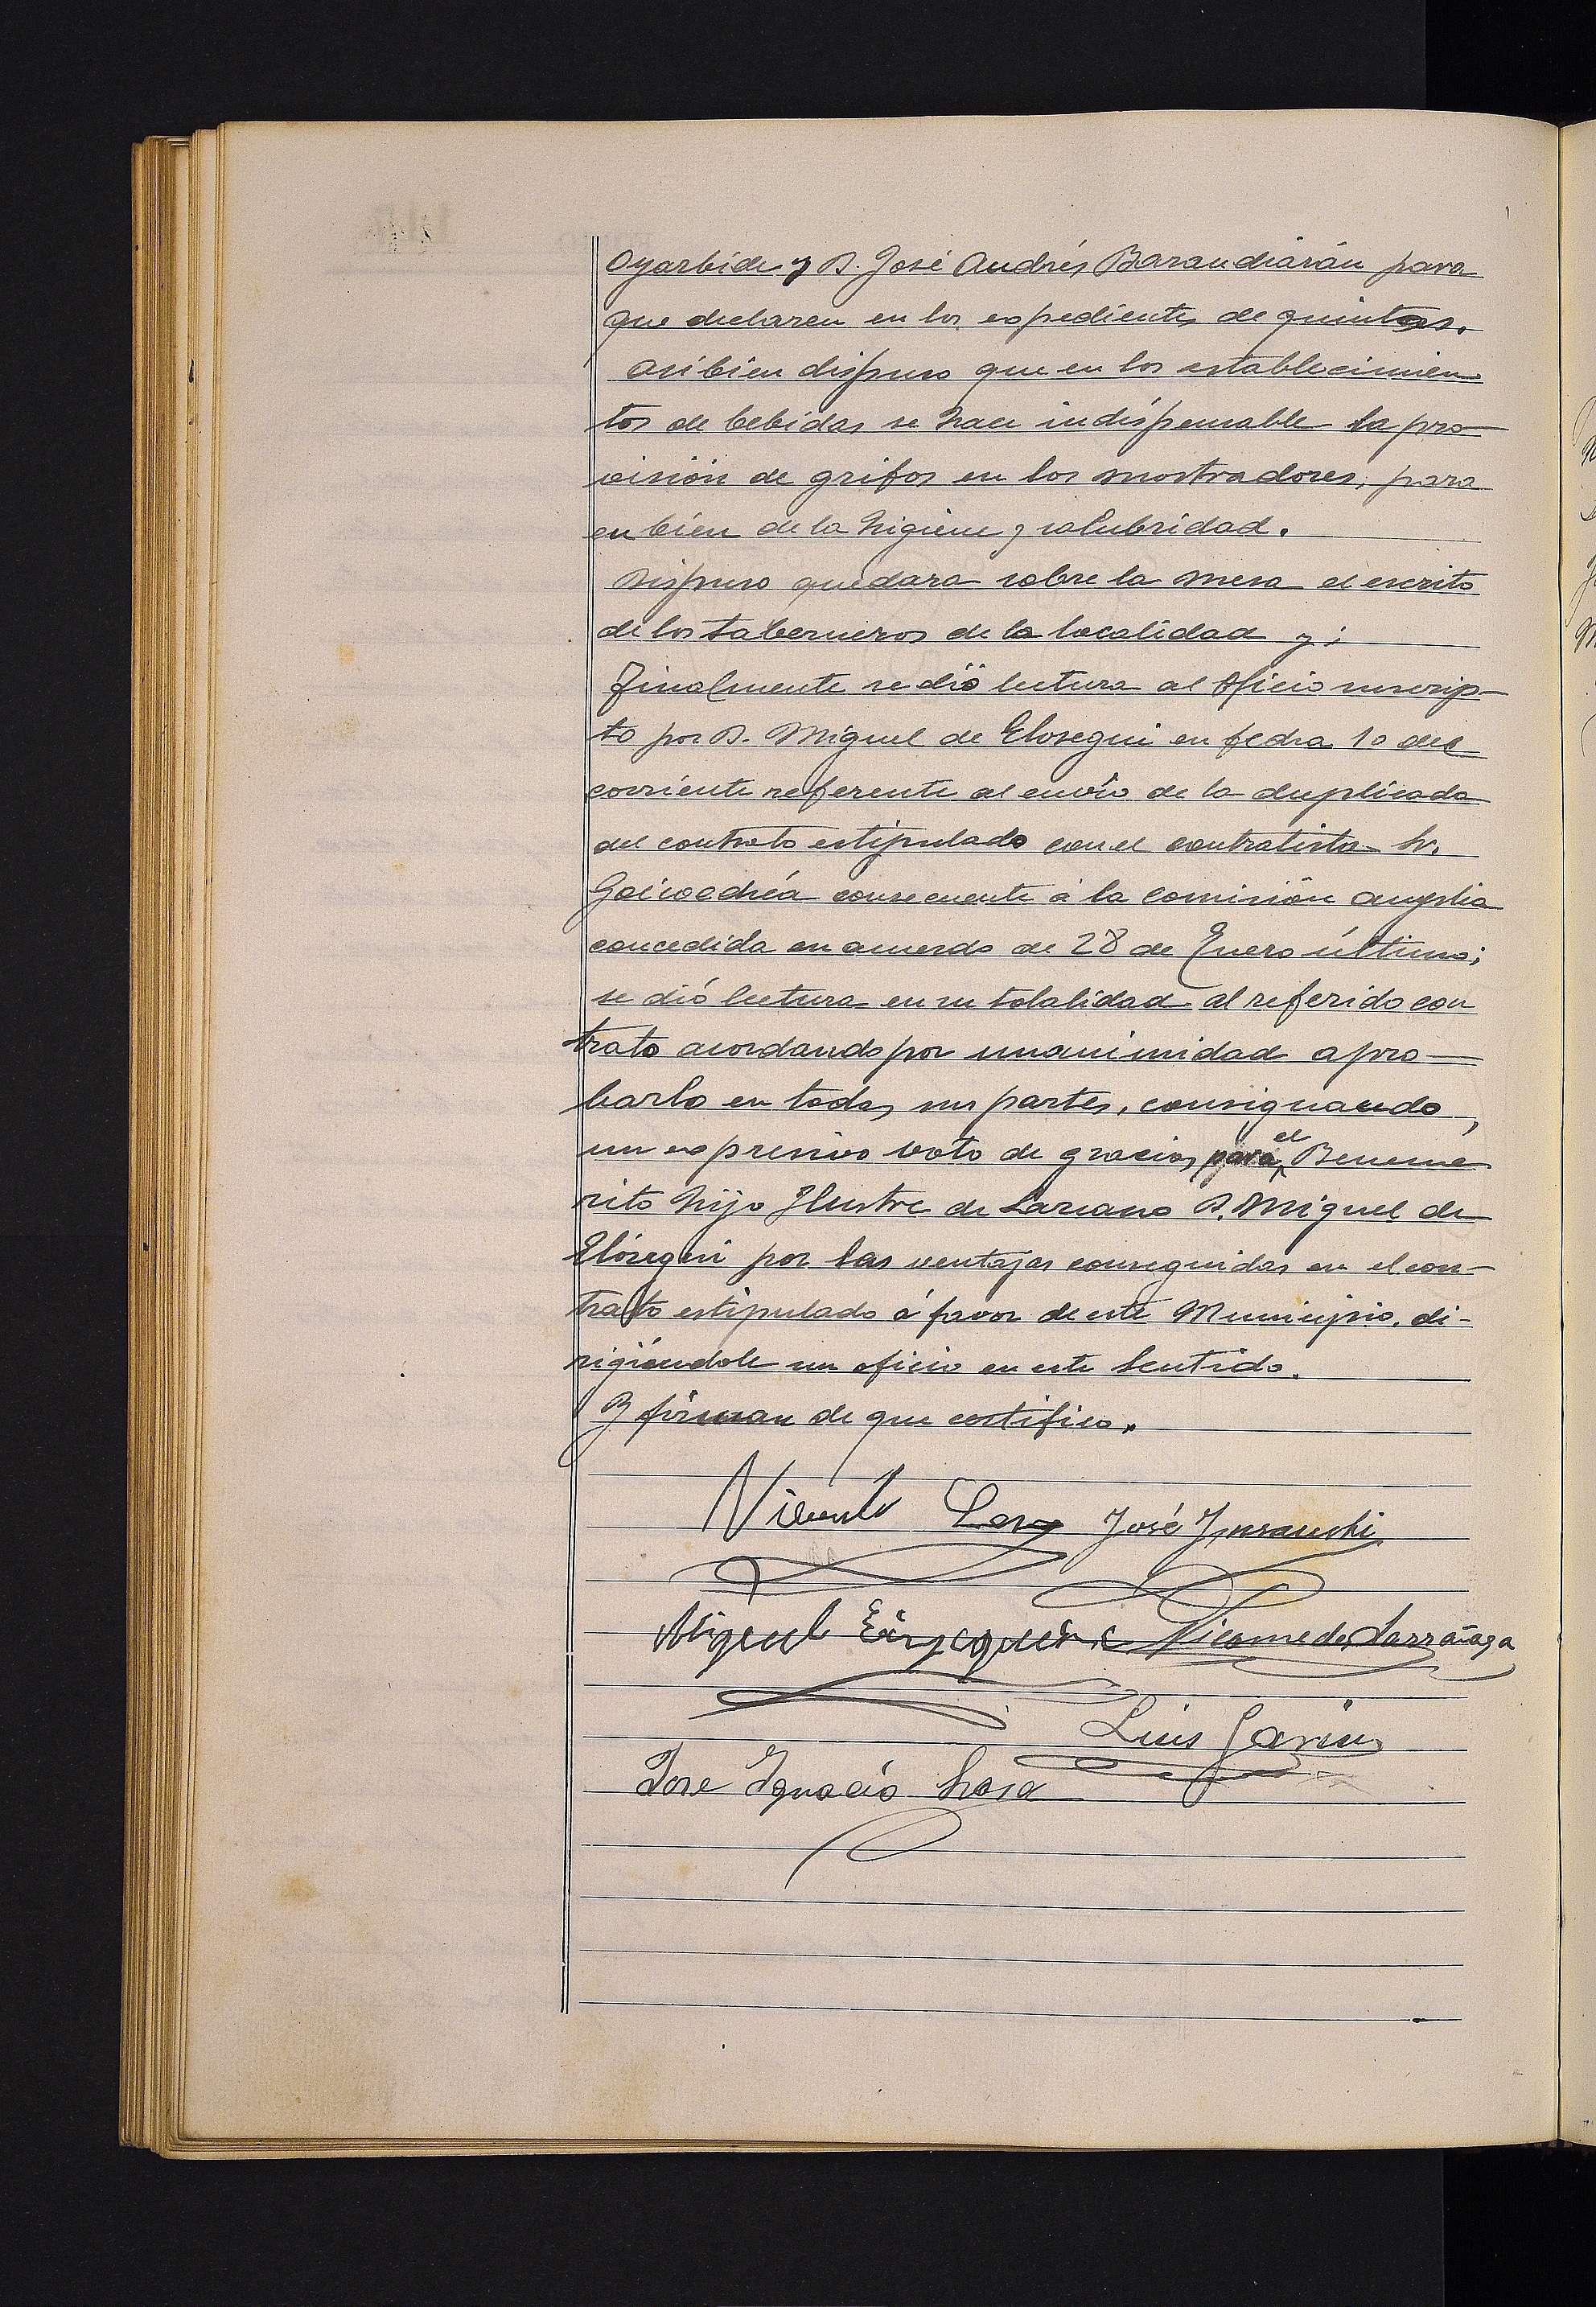 Oyarbide y D. José Andrés Barandiarán para
que declaren en los expedientes de quintas.
Asi bien dispuso que en los establecimien
tos de bebidas se hace indispensable la pro
visión de grifos en los mostradores, para
en bien de la higiene y salubridad.
Dispuso quedara sobre la mesa el escrito
de los taberneros de la localidad y;
Finalmente se dió lectura al oficio suscrip-
to por D. Miguel de Elosegui en fecha 10 del
corriente referente al envío de la duplicada
del contrato estipulado con el contratista Sr.
Goicoechéa consecuente á la comisión amplia
concedida en acuerdo de 28 de Enero último;
se dió lectura en su totalidad al referido con
trato acordando por unanimidad apro-
barlo en todas sus partes, consignando,
un expresivo voto de gracias para el Beneme
rito hijo Ilustre de Lazcano D. Miguel de
Elósegui por las ventajas conseguidas en el con-
trato estipulado á favor de este Municipio, di-
rigiéndole un oficio en este sentido.
Y firman de que certifico.
Vicente José Insausti
Miguel Nicomedes Larrañaga
Luis Garin
Jose Ignacio